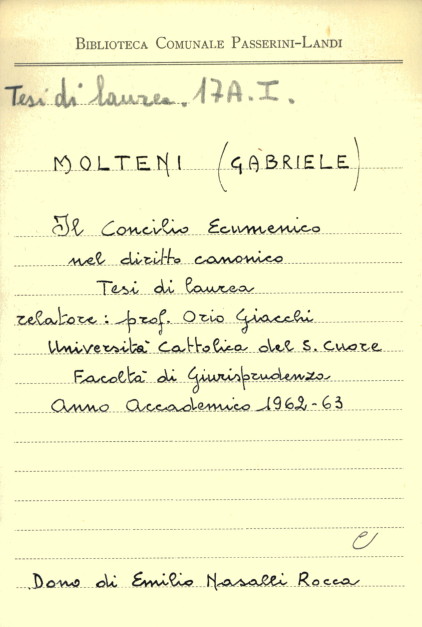 BIBLIOTECA COMUNALE PASSERINI-LANDI
Tesi di laurea. 17A.I.
MOLTENI (GABRIELE)
Il Concilio Ecumenico
nel diritto canonico
Tesi di laurea
relatore: prof. Orio Giacchi
Università Cattolica del S. Cuore
Facoltà di Giurisprudenza
Anno Accademico 1962-63
e
Dono di Emilio Nasalli Rocca